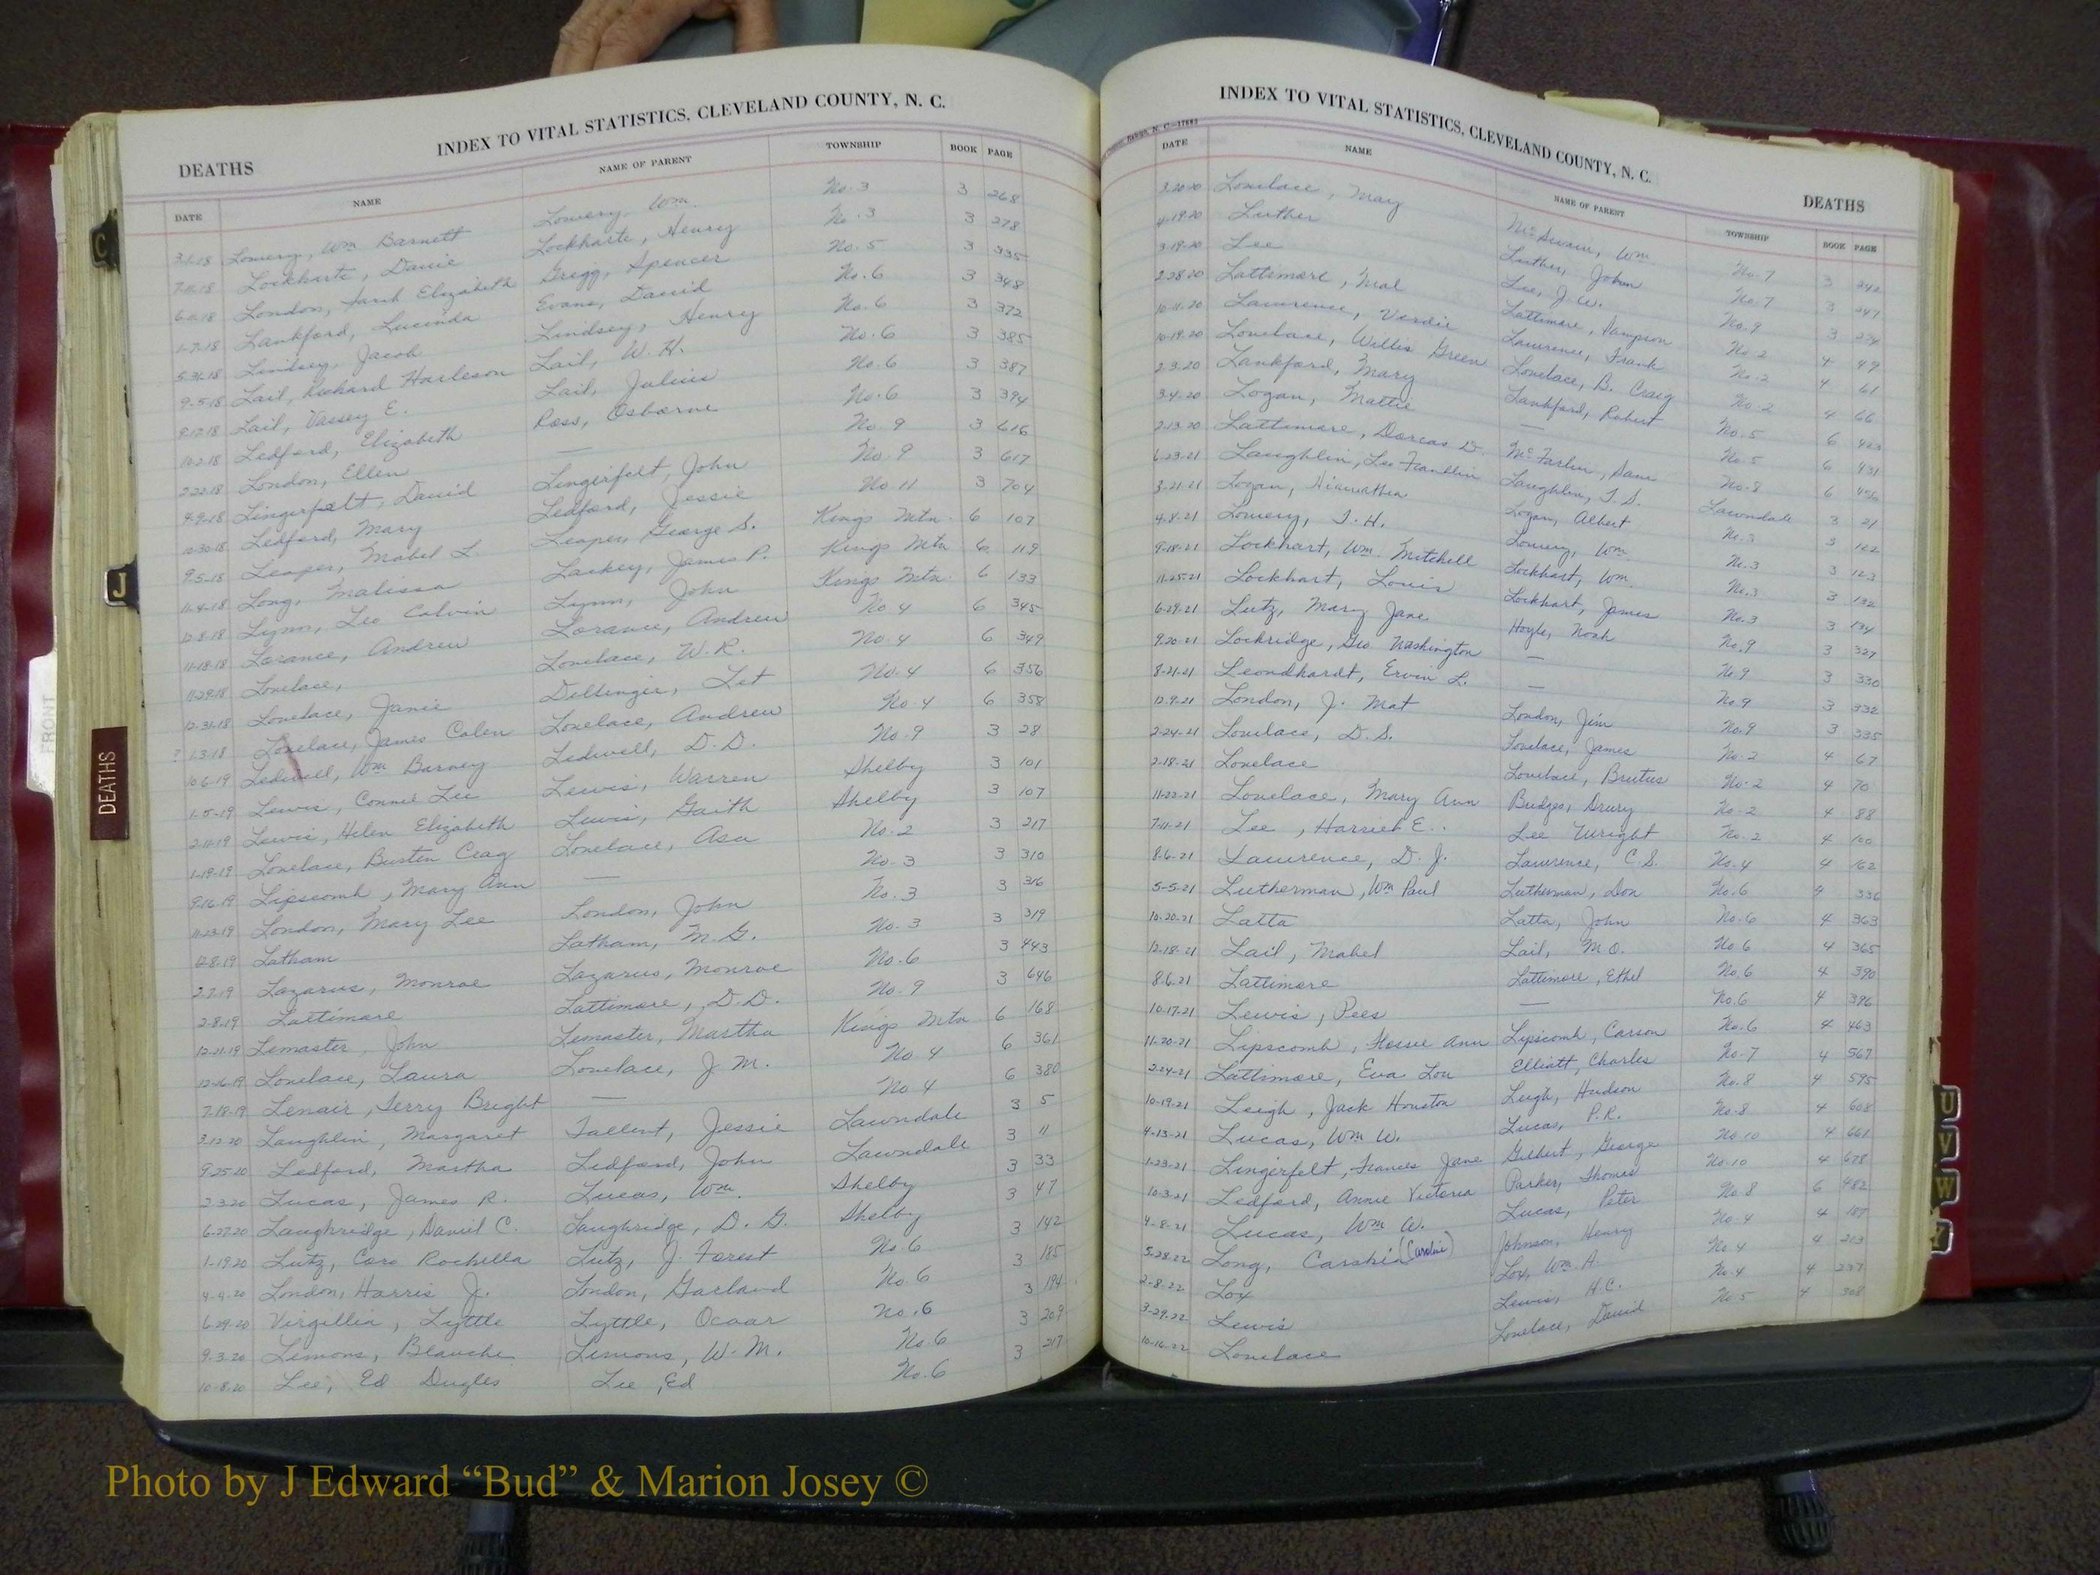 INDEX TO VITAL STATISTICS, CLEVELAND COUNTY, N. C.
DEATHS
DATE NAME NAME OF PARENT TOWNSHIP BOOK PAGE
3-1-18 Lowery, Wm Barnett Lowery, Wm. No. 3 3 268
7-11-18 Lockharte, Davie Lockharte, Henry No. 3 3 278
6-11-18 London, Sarah Elizabeth Grigg, Spencer No. 5 3 335
1-7-18 Lankford, Lucinda Evans, David No. 6 3 348
5-31-18 Lindsey, Jacob Lindsey, Henry No. 6 3 372
9-5-18 Lail, Richard Harleson Lail, W. H. No. 6 3 385
8-12-18 Lail, Vassey E. Lail, Julius No. 6 3 387
10-2-18 Ledford, Elizabeth Ross, Osborne No. 6 3 394
2-22-18 London, Ellen — No. 9 3 616
4-9-18 Lingerfelt, David Lingerfelt, John No. 9 3 617
10-30-18 Ledford, Mary Ledford, Jessie No. 11 3 704
9-5-18 Leaper, Mabel L Leaper, George S. Kings Mtn. 6 107
11-4-18 Long, Malissa Lackey, James P. Kings Mtn 6 119
12-8-18 Lynn, Leo Calvin Lynn, John Kings Mtn. 6 133
11-18-18 Lorance, Andrew Lorance, Andrew No 4 6 345
11-29-18 Lovelace, Lovelace, W. R. No 4 6 349
12-31-18 Lovelace, Janie Dellinger, Let No. 4 6 356
? 1-3-18 Lovelace, James Calen Lovelace, Andrew No. 4 6 358
10-6-19 Ledwell, Wm Barney Ledwell, D. D. No. 9 3 28
1-5-19 Lewis, Connie Lee Lewis, Warren Shelby 3 101
2-11-19 Lewis, Helen Elizabeth Lewis, Gaith Shelby 3 107
1-19-19 Lovelace, Busten Crag Lovelace, Asa No. 2 3 217
9-16-19 Lipscomb, Mary Ann — No. 3 3 310
11-23-19 London, Mary Lee London, John No. 3 3 316
12-8-19 Latham Latham, M. G. No. 3 3 319
2-7-19 Lazarus, Monroe Lazarus, Monroe No. 6 3 443
2-8-19 Lattimore Lattimore, D. D. No. 9 3 646
12-21-19 Lemaster, John Lemaster, Martha Kings Mtn 6 168
12-16-19 Lovelace, Laura Lovelace, J. M. No 4 6 361
7-18-19 Lenair, Serry Bright — No 4 6 380
3-12-20 Laughlin, Margaret Tallent, Jessie Lawndale 3 5
9-25-20 Ledford, Martha Ledford, John Lawndale 3 11
2-3-20 Lucas, James R. Lucas, Wm. Shelby 3 33
6-27-20 Laughridge, David C. Laughridge, D. G. Shelby 3 47
1-19-20 Lutz, Coro Rochella Lutz, J. Forest No. 6 3 142
4-4-20 London, Harris J. London, Garland No. 6 3 185
6-29-20 Virgillia, Lyttle Lyttle, Ocaar No. 6 3 194
9-3-20 Lemons, Blanche Lemons, W. M. No. 6 3 209
10-8-20 Lee, Ed Dugles Lee, Ed No. 6 3 217
INDEX TO VITAL STATISTICS, CLEVELAND COUNTY, N. C.
DEATHS
DATE NAME NAME OF PARENT TOWNSHIP BOOK PAGE
3-20-20 Lovelace, May McSwain, Wm. No. 7 3 242
4-19-20 Luther Luther, John No. 7 3 247
3-19-20 Lee Lee, J. W. No. 9 3 274
2-28-20 Lattimore, Neal Lattimore, Sampson No. 2 4 49
10-11-20 Lawrence, Verdie Lawrence, Frank No. 2 4 61
10-19-20 Lovelace, Willis Green Lovelace, B. Craig No. 2 4 66
2-3-20 Lankford, Mary Lankford, Robert No. 5 6 423
3-4-20 Logan, Mattie — No. 5 6 431
2-13-20 Lattimore, Dorcas D. McFarlin, Dave No. 8 6 456
6-23-21 Laughlin, Leo Franklin Laughlin, T. S. Lawndale 3 21
3-21-21 Logan, Hiawatha Logan, Albert No. 3 3 122
4-8-21 Lowery, J. H. Lowery, Wm No. 3 3 123
9-18-21 Lockhart, Wm. Mitchell Lockhart, Wm No. 3 3 132
11-25-21 Lockhart, Louis Lockhart, James No. 3 3 134
6-29-21 Lutz, Mary Jane Hoyle, Noah No. 9 3 327
9-20-21 Lockridge, Geo. Washington — No. 9 3 330
8-21-21 Leondhardt, Ervin L. — No. 9 3 332
12-9-21 London, J. Mat London, Jim No. 9 3 335
2-24-21 Lovelace, D. S. Lovelace, James No. 2 4 67
2-18-21 Lovelace Lovelace, Brutus No. 2 4 70
11-22-21 Lovelace, Mary Ann Budges, Drury No. 2 4 88
7-11-21 Lee, Harriet E. Lee Wright No. 2 4 100
8-6-21 Lawrence, D. J. Lawrence, C. S. No. 4 4 162
5-5-21 Lutherman, Wm Paul Lutherman, Don No. 6 4 336
10-20-21 Latta Latta, John No. 6 4 363
12-18-21 Lail, Mabel Lail, M. O. No. 6 4 365
8-6-21 Lattimore Lattimore, Ethel No. 6 4 390
10-17-21 Lewis, Pees — No. 6 4 396
11-20-21 Lipscomb, Flossie Ann Lipscomb, Carson No. 6 4 463
2-24-21 Lattimore, Eva Lou Elliott, Charles No. 7 4 567
10-19-21 Leigh, Jack Houston Leigh, Hudson No. 8 4 595
4-13-21 Lucas, Wm W. Lucas, P. R. No. 8 4 608
1-23-21 Lingerfelt, Frances Jane Gilbert, George No. 10 4 661
10-3-21 Ledford, Annie Victoria Parker, Thomas No. 10 4 678
4-8-21 Lucas, Wm W. Lucas, Peter No. 8 6 482
5-28-22 Long, Carshie (Caroline) Johnson, Henry No. 4 4 187
2-8-22 Loy Loy, Wm. A. No. 4 4 213
3-29-22 Lewis Lewis, H. C. No. 4 4 237
10-16-22 Lovelace Lovelace, David No. 5 4 308
C
J
DEATHS
FRONT
U
V
W
Y
Photo by J Edward “Bud” & Marion Josey ©